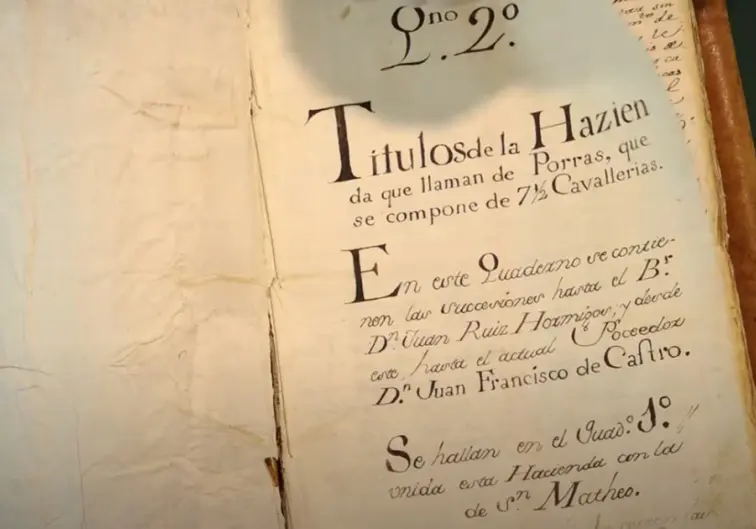 Qno. 2º.
Titulos de la Hazien
da que llaman de Porras, que
se compone de 7½ Cavallerias.
En este Quaderno se contie-
nen las successiones hasta el Br.
Dn. Juan Ruiz Hormigos, y desde
este, hasta el actual Poceedor
D.n Juan Francisco de Castro.
Se hallan en el Quad.º 1.º
unida esta Hacienda con la
de S.n Matheo.